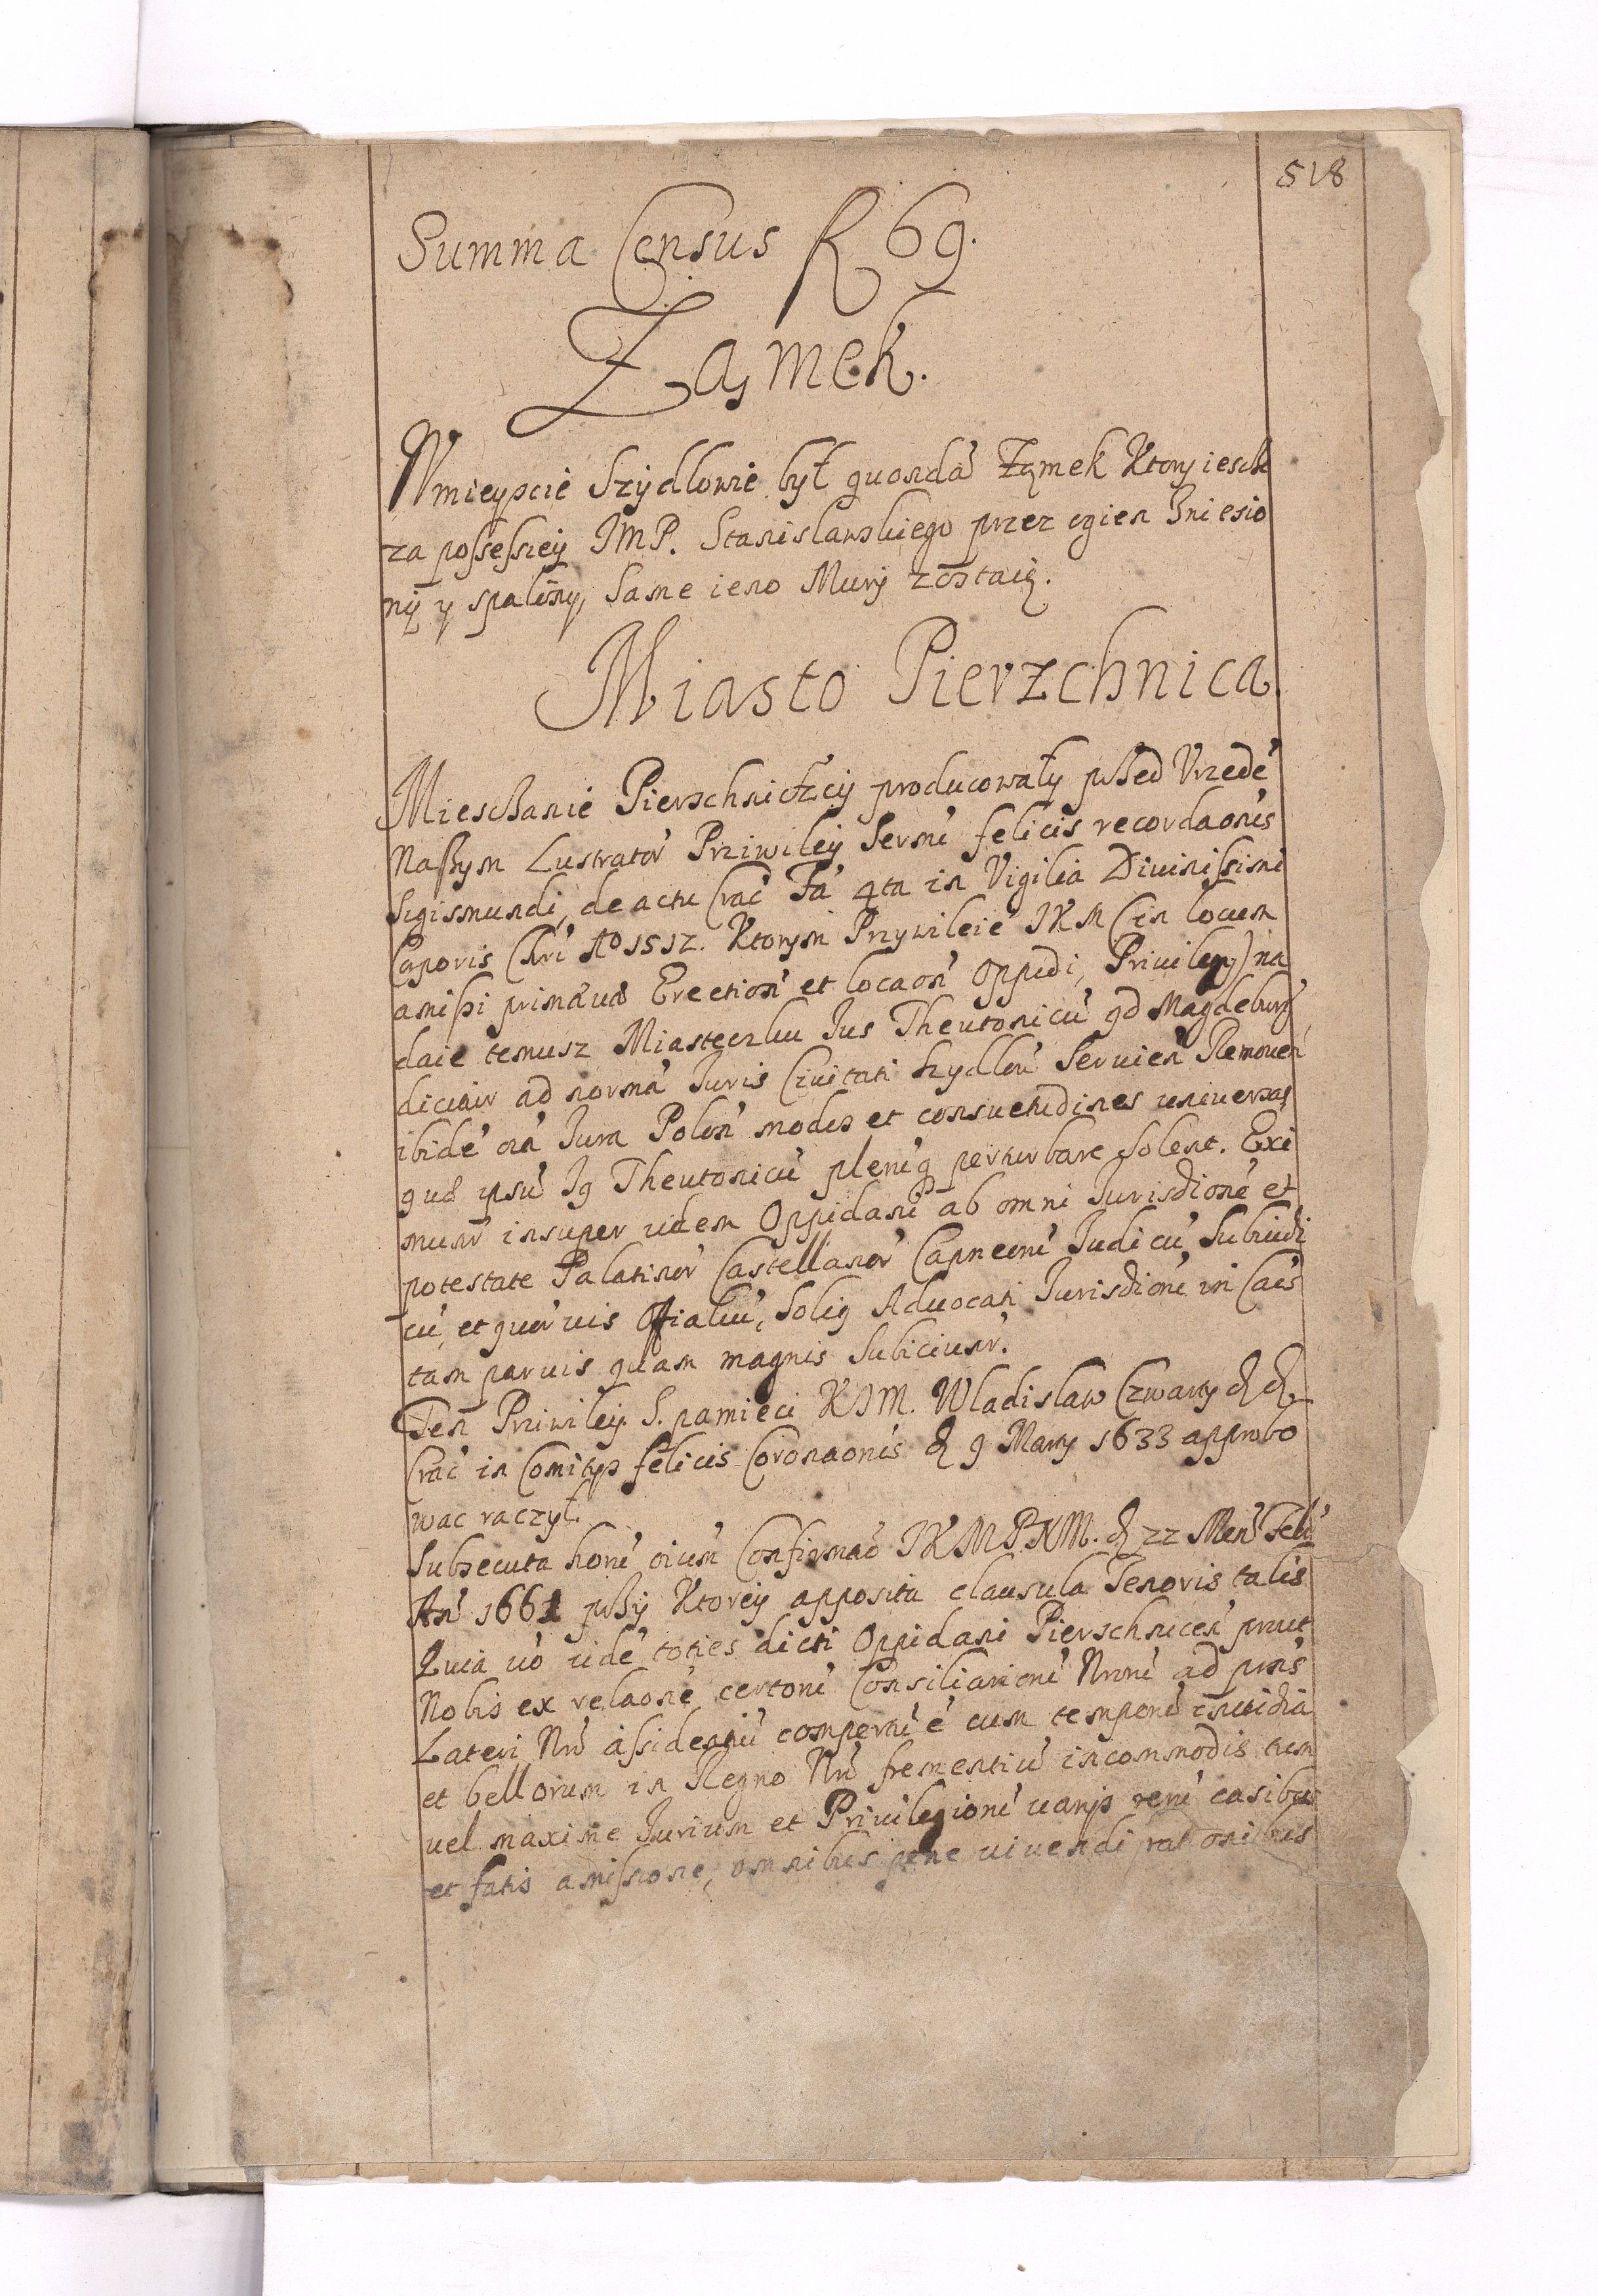 518
Summa Census R 69.
Zamek.
W mieyscie Szydlowie był quondā Zamek Ktory iescze
za possessiey JMP. Stanislawskiego przez ogien Zniesio
ny y spalony, Same ieno Mury zostaią.
Miasto Pierzchnica.
Mieszczanie Pierschnicczcy producowały przed Vrzedē
Naszym Lustrator Priwiley Sermi felicis recordaonis
Sigismundi, de actu Crac Fa 4ta in Vigilia Diuinissimi
Corporis Chri Ao 1512. Ktorym Przywileie JKM (in locum
amissi primaeua Erection et locaon Oppidi, Priuilegy) na
daie temusz Miasteczku Jus Theutonicū qd Magdeburg
dicitur ad normā Juris Ciuitati Szydlou Seruien Remouen
ibidē oīa Jura Polon modos et consuetudines uniuersas
quae ipsū Jq Theutonicū plenīq perturbare Solent. Exi
munr insuper iidem Oppidani ab omni Jurisdione et
potestate Palatinor Castellanor Capneonē Judicū, Subiudi
cū, et quoruis Offialiū, Soliq Aduocati Jurisdioni in Cais
tam paruis quam magnis Subiciunr.
Ten Priwiley S. pamieci KJM. Wladislaw Czwarty d d
Crac in Comitys felicis Coronaonis d 9 Marty 1633 approbo
wac raczył.
Subsecuta horū oium Confirmao JKMPNM. d 22 Men Feb
An 1661 przy Ktorey apposita clausula Tenoris talis
Quia uo iidē toties dicti Oppidani Pierschnicen prout
Nobis ex relaone certorū Consiliarionē Nrorū ad pns
Lateri Nro assidentiū compertū ē cum temporū inuidia
et bellorum in Regno Nro frementiū incommodis tum
uel maxime Jurium et Priuilegiorū uarys rerū casibus
et fatis amissione, omnibus pene uiuendi rationibus